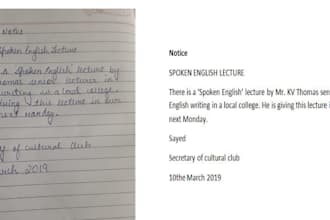 Notice
Spoken English Lecture
A Spoken English lecture by
Thomas senior lecturer in
writing in a local college.
giving this lecture in our
next Monday.
y of cultural club
arch 2019
Notice
SPOKEN ENGLISH LECTURE
There is a 'Spoken English' lecture by Mr. KV Thomas sen
English writing in a local college. He is giving this lecture i
next Monday.
Sayed
Secretary of cultural club
10the March 2019